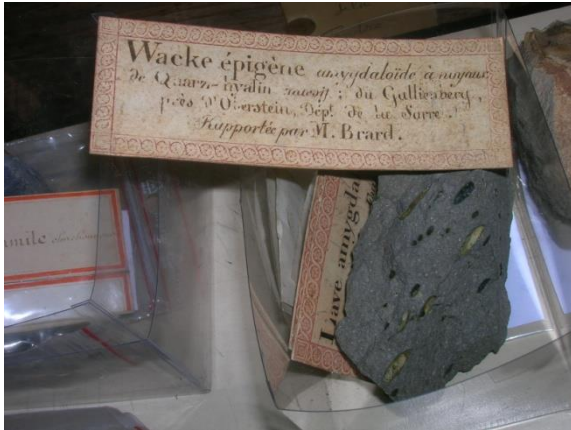 Wacke épigène amygdaloïde à noyaux
de Quarz-hyalin massif; du Gallienberg,
près d'Oberstein, Dépt. de la Sarre.
Rapportée par M. Brard.
Lave amygda